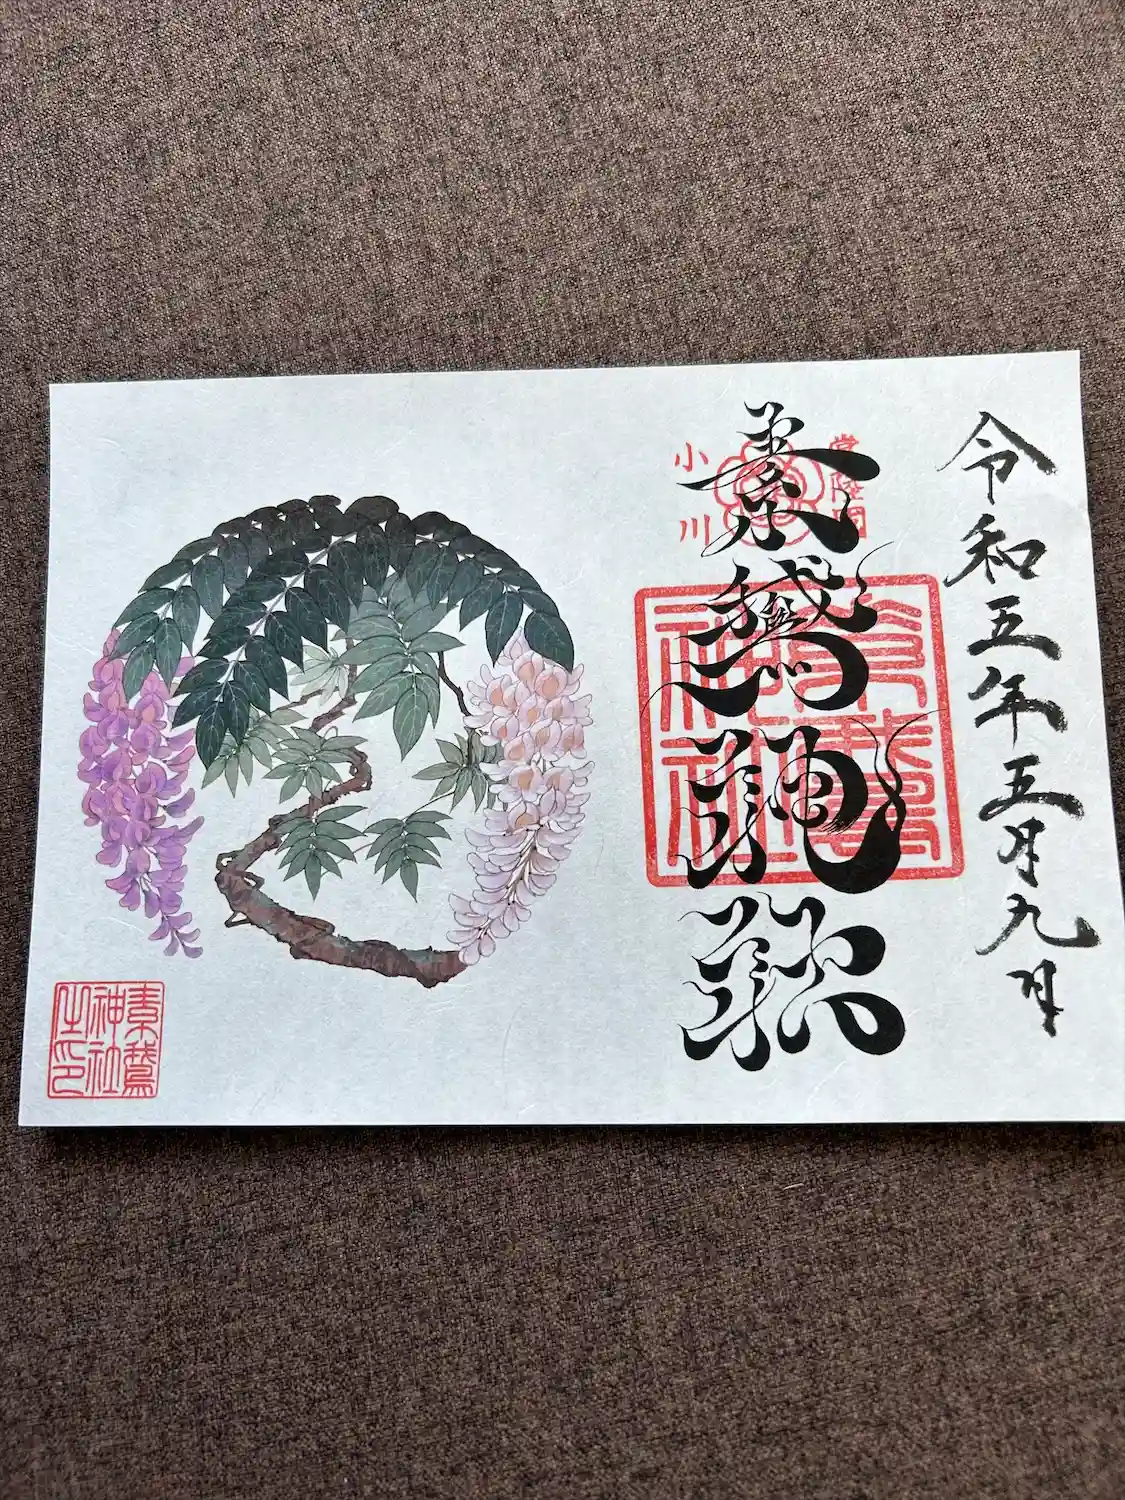 令和五年五月九日
常陸国
小川
素鵞神社
素鵞
神社
素鵞
神社
之印